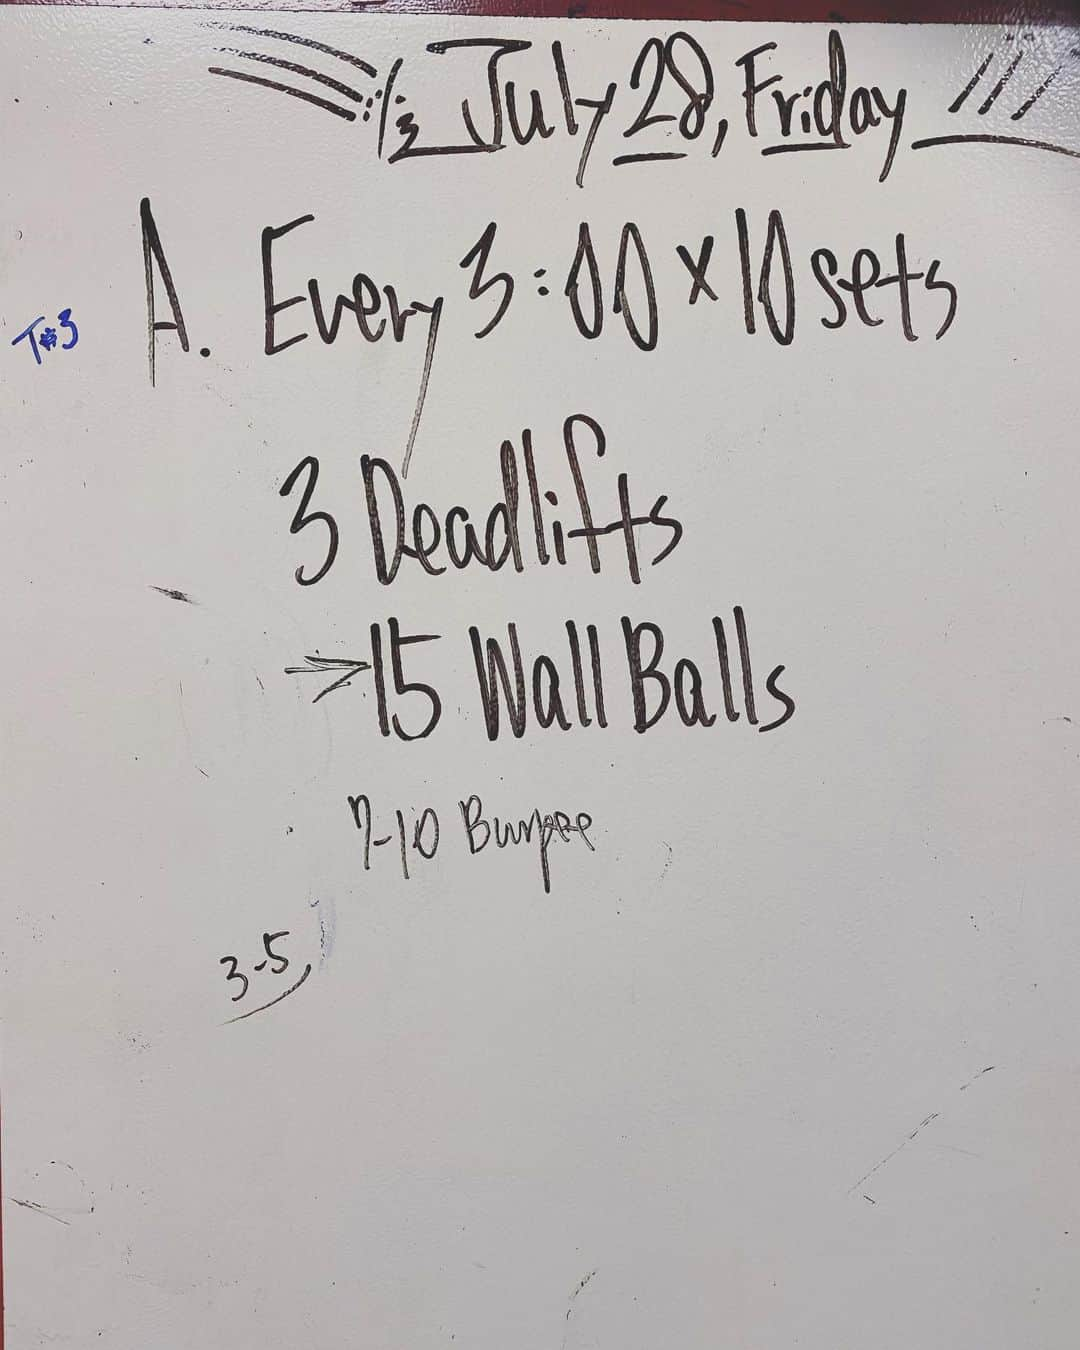 July 28, Friday
A. Every 3:00 x 10 sets
T#3
3 Deadlifts
→15 Wall Balls
7-10 Burpee
3-5